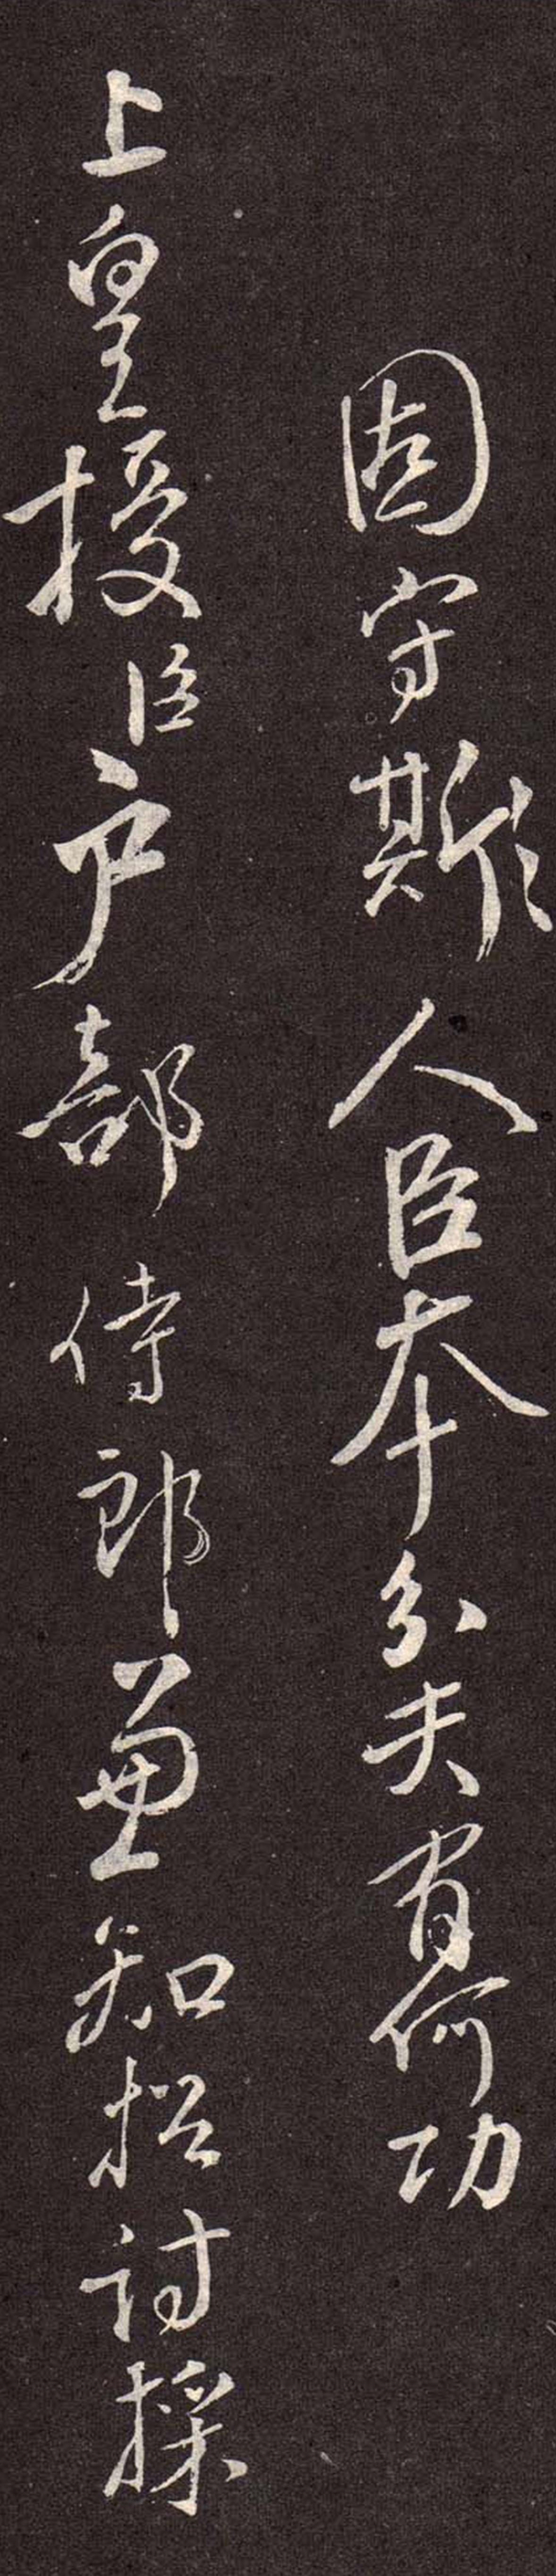 固守斯人臣本分夫有何功
上皇授臣户部侍郎兼知招討採